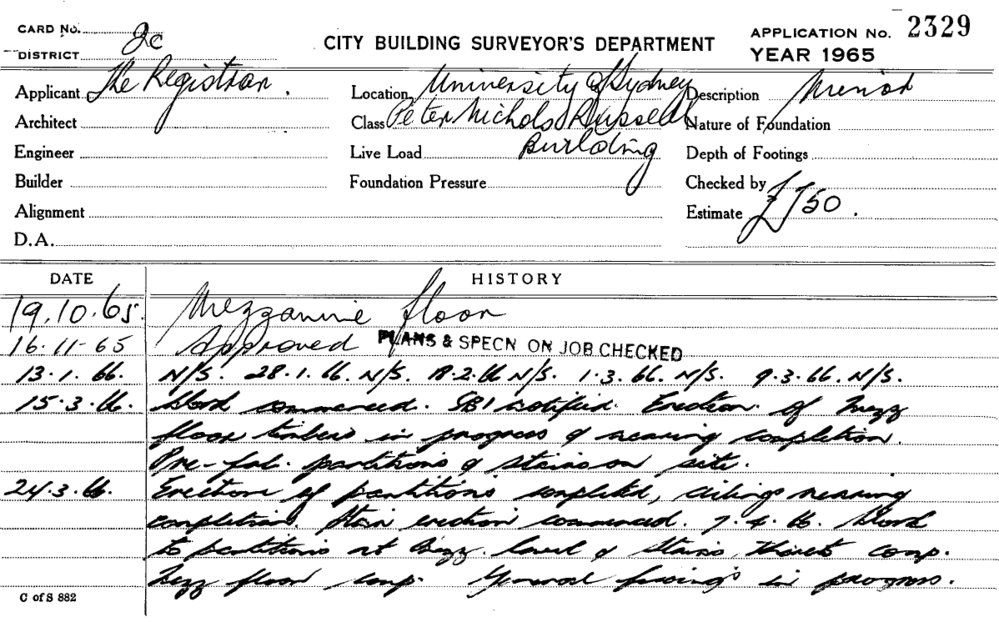 CARD No. 2c
DISTRICT
CITY BUILDING SURVEYOR'S DEPARTMENT
APPLICATION No. 2329
YEAR 1965
Applicant The Registrar.
Location University of Sydney
Description Minor
Architect
Class Peter Nichols Russell
Nature of Foundation
Engineer
Live Load Building
Depth of Footings
Builder
Foundation Pressure
Checked by
Alignment
Estimate £750.
D.A.
DATE HISTORY
19.10.65 Mezzanine floor
16-11-65 Approved PLANS & SPECN ON JOB CHECKED
13.1.66. N/S. 28.1.66. N/S. 18.2.66 N/S. 1.3.66. N/S. 9.3.66. N/S.
15.3.66. Work commenced. notified. Erection of Mezz
floor timbers in progress & nearing completion.
Pre-fab. partitions & stairs on site.
24.3.66. Erection of partitions completed, ceilings nearing
completion. Stair erection commenced. 7.4.66. Work
to partitions at Mezz. level & stairs, thereto comp.
Mezz floor comp. General fixings in progress.
C of S 882